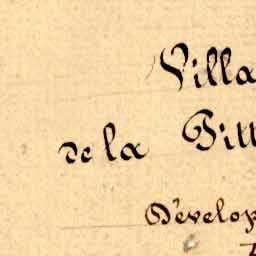 Villa
de la Pitt
Dévelop